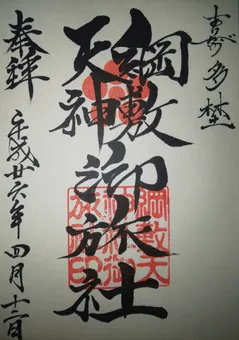 喜多埜
綱敷
天神
御旅社
奉拝
平成廿六年四月十二日